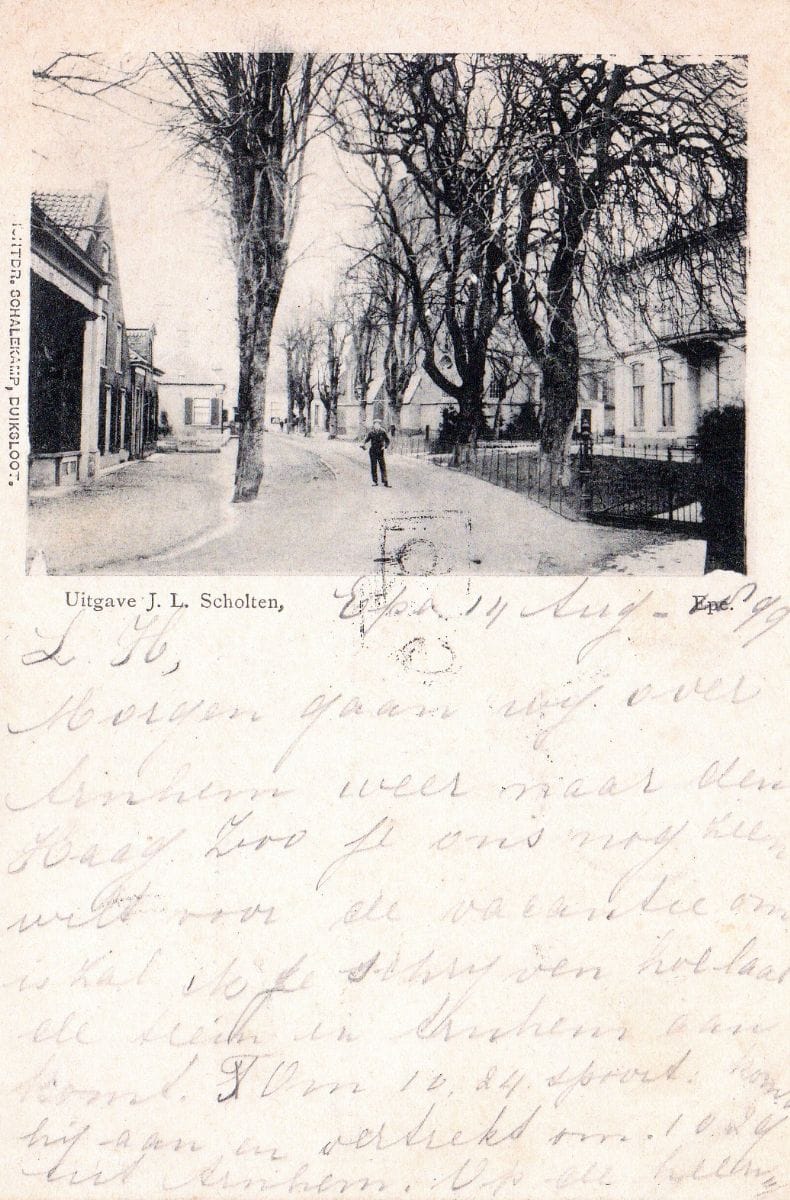 INTDR. SCHALEKAMP, BUIKSLOOT.
Uitgave J. L. Scholten,
Epe.
Epe 14 Aug - 1899
L. H,
Morgen gaan wij over
Arnhem weer naar den
Haag Zoo je ons nog zien
wilt voor de vacantie om
is zal ik je schrijven hoe laat
de trein in Arnhem aan
komt. Om 10.24 spoort. komt
hij aan en vertrekt om. 10.29
uit Arnhem. Op de heen